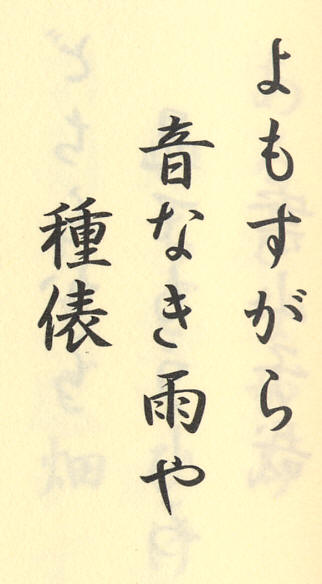 よもすがら
音なき雨や
種俵